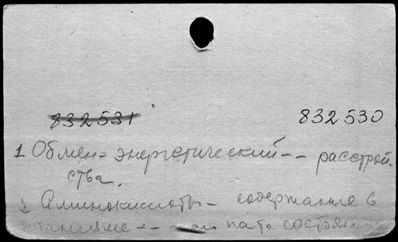 832531 832530
1 Обмен - энергетический -- расстрой-
ства.
2 Аминокислоты - содержание в
-- пато состоян